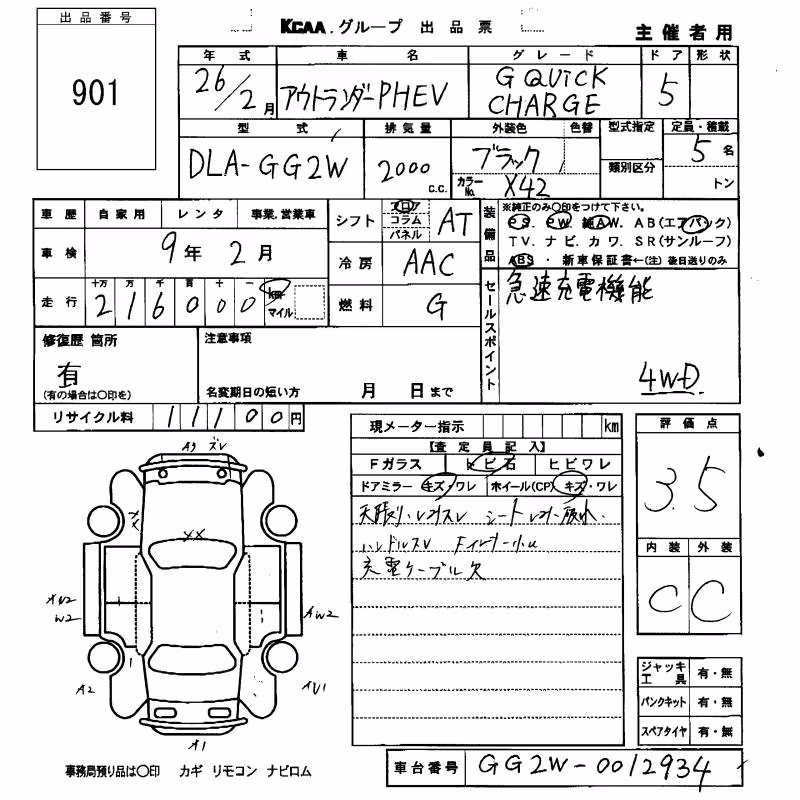 出品番号
KCAA.グループ 出品票
主催者用
901
年式 車名 グレード ドア 形状
26/2月 アウトランダーPHEV G QUICK CHARGE 5
型式 排気量 外装色 色替 型式指定 定員・積載
DLA-GG2W 2000 c.c. ブラック 5名
カラーNo. X42 類別区分 トン
車歴 自家用 レンタ 事業,営業車
シフト フロア コラム パネル AT
装備品 ※純正のみ〇印をつけて下さい。
PS. PW. 純AW. AB(エアバック)
TV. ナビ. カワ. SR(サンルーフ)
ABS ・ 新車保証書←(注) 後日送りのみ
車検 9年 2月
冷房 AAC
走行 十万 万 千 百 十 一
216000 km マイル
燃料 G
セールスポイント 急速充電機能
4WD
修復歴 箇所
有
(有の場合は〇印を)
注意事項
名変期日の短い方 月 日まで
リサイクル料 11100円
現メーター指示 km
【査定員記入】
Fガラス トビ石 ヒビワレ
ドアミラー キズ・ワレ ホイール(CP) キズ・ワレ
充電ケーブル欠
評価点
3.5
内装 外装
C C
A1 ズレ
XX
W2
AW2
A2
A1
ジャッキ工具 有・無
パンクキット 有・無
スペアタイヤ 有・無
事務局預り品は〇印 カギ リモコン ナビロム
車台番号 GG2W-0012934